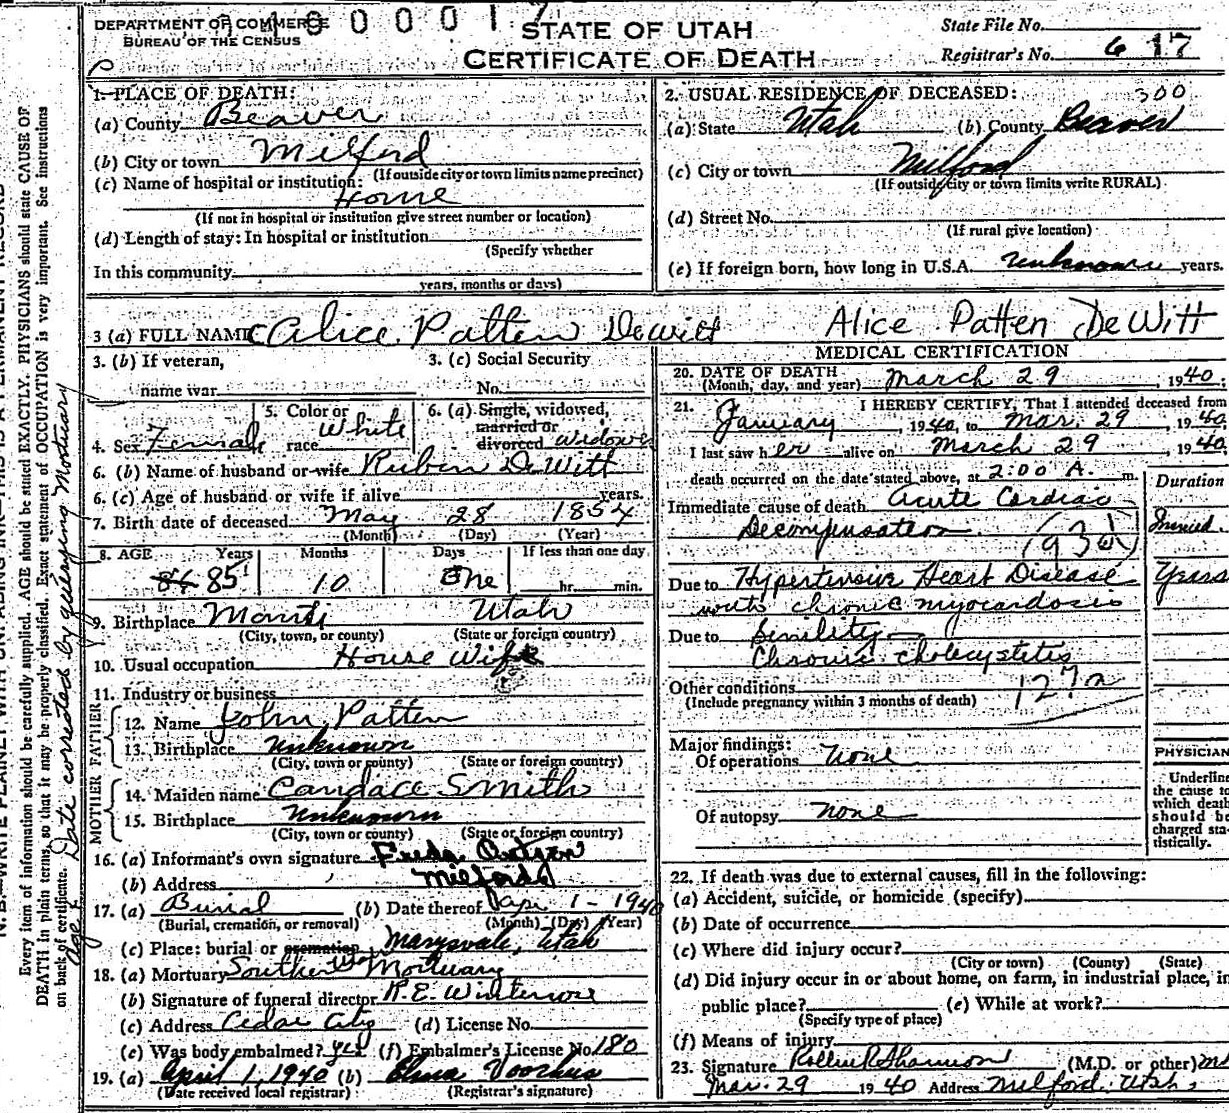 DEPARTMENT OF COMMERCE
BUREAU OF THE CENSUS
STATE OF UTAH
CERTIFICATE OF DEATH
State File No.
Registrar's No. 6 17
1. PLACE OF DEATH:
(a) County Beaver
(b) City or town Milford
(If outside city or town limits name precinct)
(c) Name of hospital or institution:
Home
(If not in hospital or institution give street number or location)
(d) Length of stay: In hospital or institution
(Specify whether
In this community
years, months or days)
2. USUAL RESIDENCE OF DECEASED: 300
(a) State Utah (b) County Beaver
(c) City or town Milford
(If outside city or town limits write RURAL)
(d) Street No.
(If rural give location)
(e) If foreign born, how long in U.S.A. unknown years.
3 (a) FULL NAME Alice Patten DeWitt Alice Patten DeWitt
3. (b) If veteran,
name war
3. (c) Social Security
No.
4. Sex Female
5. Color or
race White
6. (a) Single, widowed,
married or
divorced widowed
6. (b) Name of husband or wife Ruben DeWitt
6. (c) Age of husband or wife if alive years.
7. Birth date of deceased May 28 1854
(Month) (Day) (Year)
8. AGE Years Months Days If less than one day
84 85 10 One hr. min.
9. Birthplace Manti Utah
(City, town, or county) (State or foreign country)
10. Usual occupation House Wife
11. Industry or business
FATHER
12. Name John Patten
13. Birthplace unknown
(City, town or county) (State or foreign country)
MOTHER
14. Maiden name Candace Smith
15. Birthplace Unknown
(City, town or county) (State or foreign country)
16. (a) Informant's own signature Freda
(b) Address Milford
17. (a) Burial (b) Date thereof Apr 1 - 1940
(Burial, cremation, or removal) (Month) (Day) (Year)
(c) Place: burial or cremation Marysvale, Utah
18. (a) Mortuary Southern Utah Mortuary
(b) Signature of funeral director R.E. Winterrose
(c) Address Cedar City (d) License No.
(e) Was body embalmed? yes (f) Embalmer's License No. 180
19. (a) April 1, 1940 (b) Elma Voorhus
(Date received local registrar) (Registrar's signature)
MEDICAL CERTIFICATION
20. DATE OF DEATH
(Month, day, and year) March 29, 1940.
21. I HEREBY CERTIFY, That I attended deceased from
January, 1940, to Mar. 29, 1940.
I last saw her alive on March 29, 1940,
death occurred on the date stated above, at 2:00 A. m.
Duration
Immediate cause of death Acute Cardiac
Decompensation Immed.
Due to Hypertensive Heart Disease Years
with chronic myocardosis
Due to Senility
Chronic cholecystitis
Other conditions 127a
(Include pregnancy within 3 months of death)
Major findings:
Of operations none
Of autopsy none
PHYSICIAN
Underline
the cause to
which death
should be
charged sta-
tistically.
22. If death was due to external causes, fill in the following:
(a) Accident, suicide, or homicide (specify)
(b) Date of occurrence
(c) Where did injury occur?
(City or town) (County) (State)
(d) Did injury occur in or about home, on farm, in industrial place, in
public place? (e) While at work?
(Specify type of place)
(f) Means of injury
23. Signature Rollin R Shannon (M.D. or other) MD
Mar. 29 1940 Address Milford, Utah.
N. B.—WRITE PLAINLY WITH UNFADING INK—THIS IS A PERMANENT RECORD
Every item of information should be carefully supplied. AGE should be stated EXACTLY. PHYSICIANS should state CAUSE OF
DEATH in plain terms, so that it may be properly classified. Exact statement of OCCUPATION is very important. See instructions
on back of certificate. Date corrected by querying Mortuary
Age &